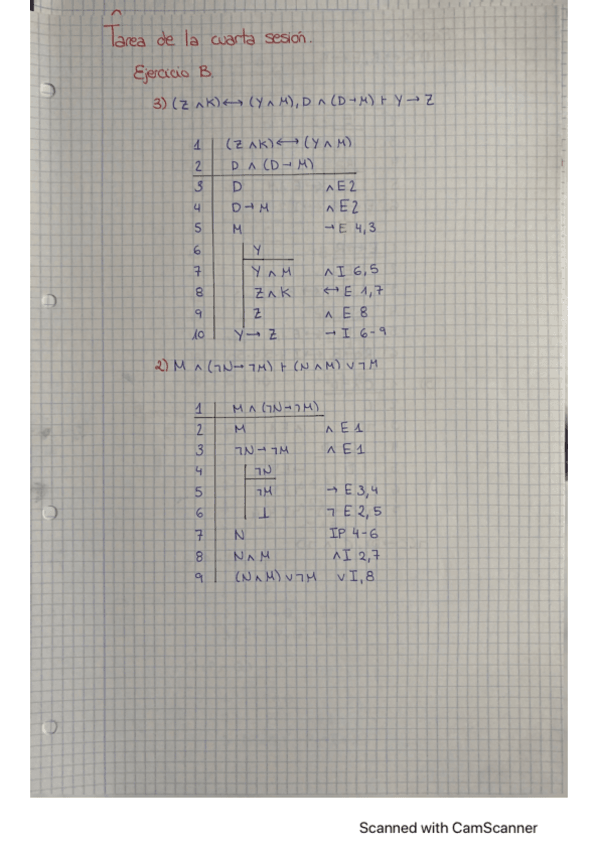 Tarea de la cuarta sesión.
Ejercicio B
3) (Z ∧ K) ↔ (Y ∧ M), D ∧ (D → M) ⊢ Y → Z
1 (Z ∧ K) ↔ (Y ∧ M)
2 D ∧ (D → M)
3 D ∧ E 2
4 D → M ∧ E 2
5 M → E 4,3
6 Y
7 Y ∧ M ∧ I 6,5
8 Z ∧ K ↔ E 1,7
9 Z ∧ E 8
10 Y → Z → I 6-9
2) M ∧ (¬N → ¬M) ⊢ (N ∧ M) ∨ ¬M
1 M ∧ (¬N → ¬M)
2 M ∧ E 1
3 ¬N → ¬M ∧ E 1
4 ¬N
5 ¬M → E 3,4
6 ⊥ ¬ E 2,5
7 N IP 4-6
8 N ∧ M ∧ I 2,7
9 (N ∧ M) ∨ ¬M ∨ I, 8
Scanned with CamScanner